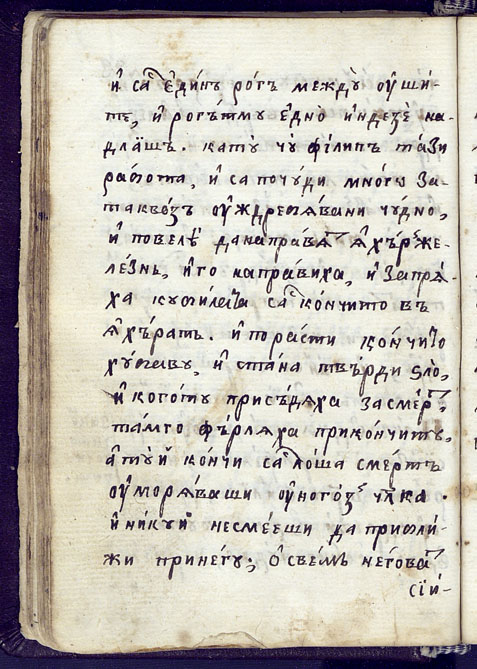 и са единъ рогъ между уши-
те, и рогътму едно индезе на-
длъшъ. като чу филипъ тази
работа, и са почуди много за
таквозъ уждребявани чудно,
и повеле данаправѧтъ яхъръ же-
лезнь, иго направиха, и запрѧ-
ха кобилата са кончито въ
яхърать. и порасти кончито
хубаву, и стана твърди зло,
и когото присъдяха засмерть
тамго фърляха прикончиту,
а туй кончи са лоша смерть
уморяваши уногозъ чл҃ка.
и никуй несмееши да прибли-
жи принегу, освемъ негова
сій-